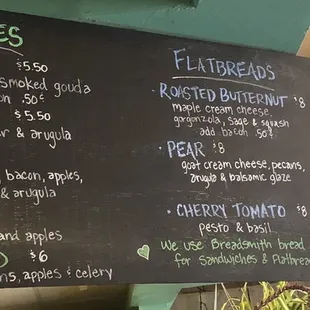 ES
$5.50
smoked gouda
on .50¢
$5.50
r & arugula
, bacon, apples,
& arugula
and apples
$6
ns, apples & celery
FLATBREADS
• ROASTED BUTTERNUT $8
maple cream cheese,
gorgonzola, sage & squash
add bacon .50¢
• PEAR $8
goat cream cheese, pecans,
arugula & balsamic glaze
• CHERRY TOMATO $8
pesto & basil
We use Breadsmith bread
for Sandwiches & Flatbrea